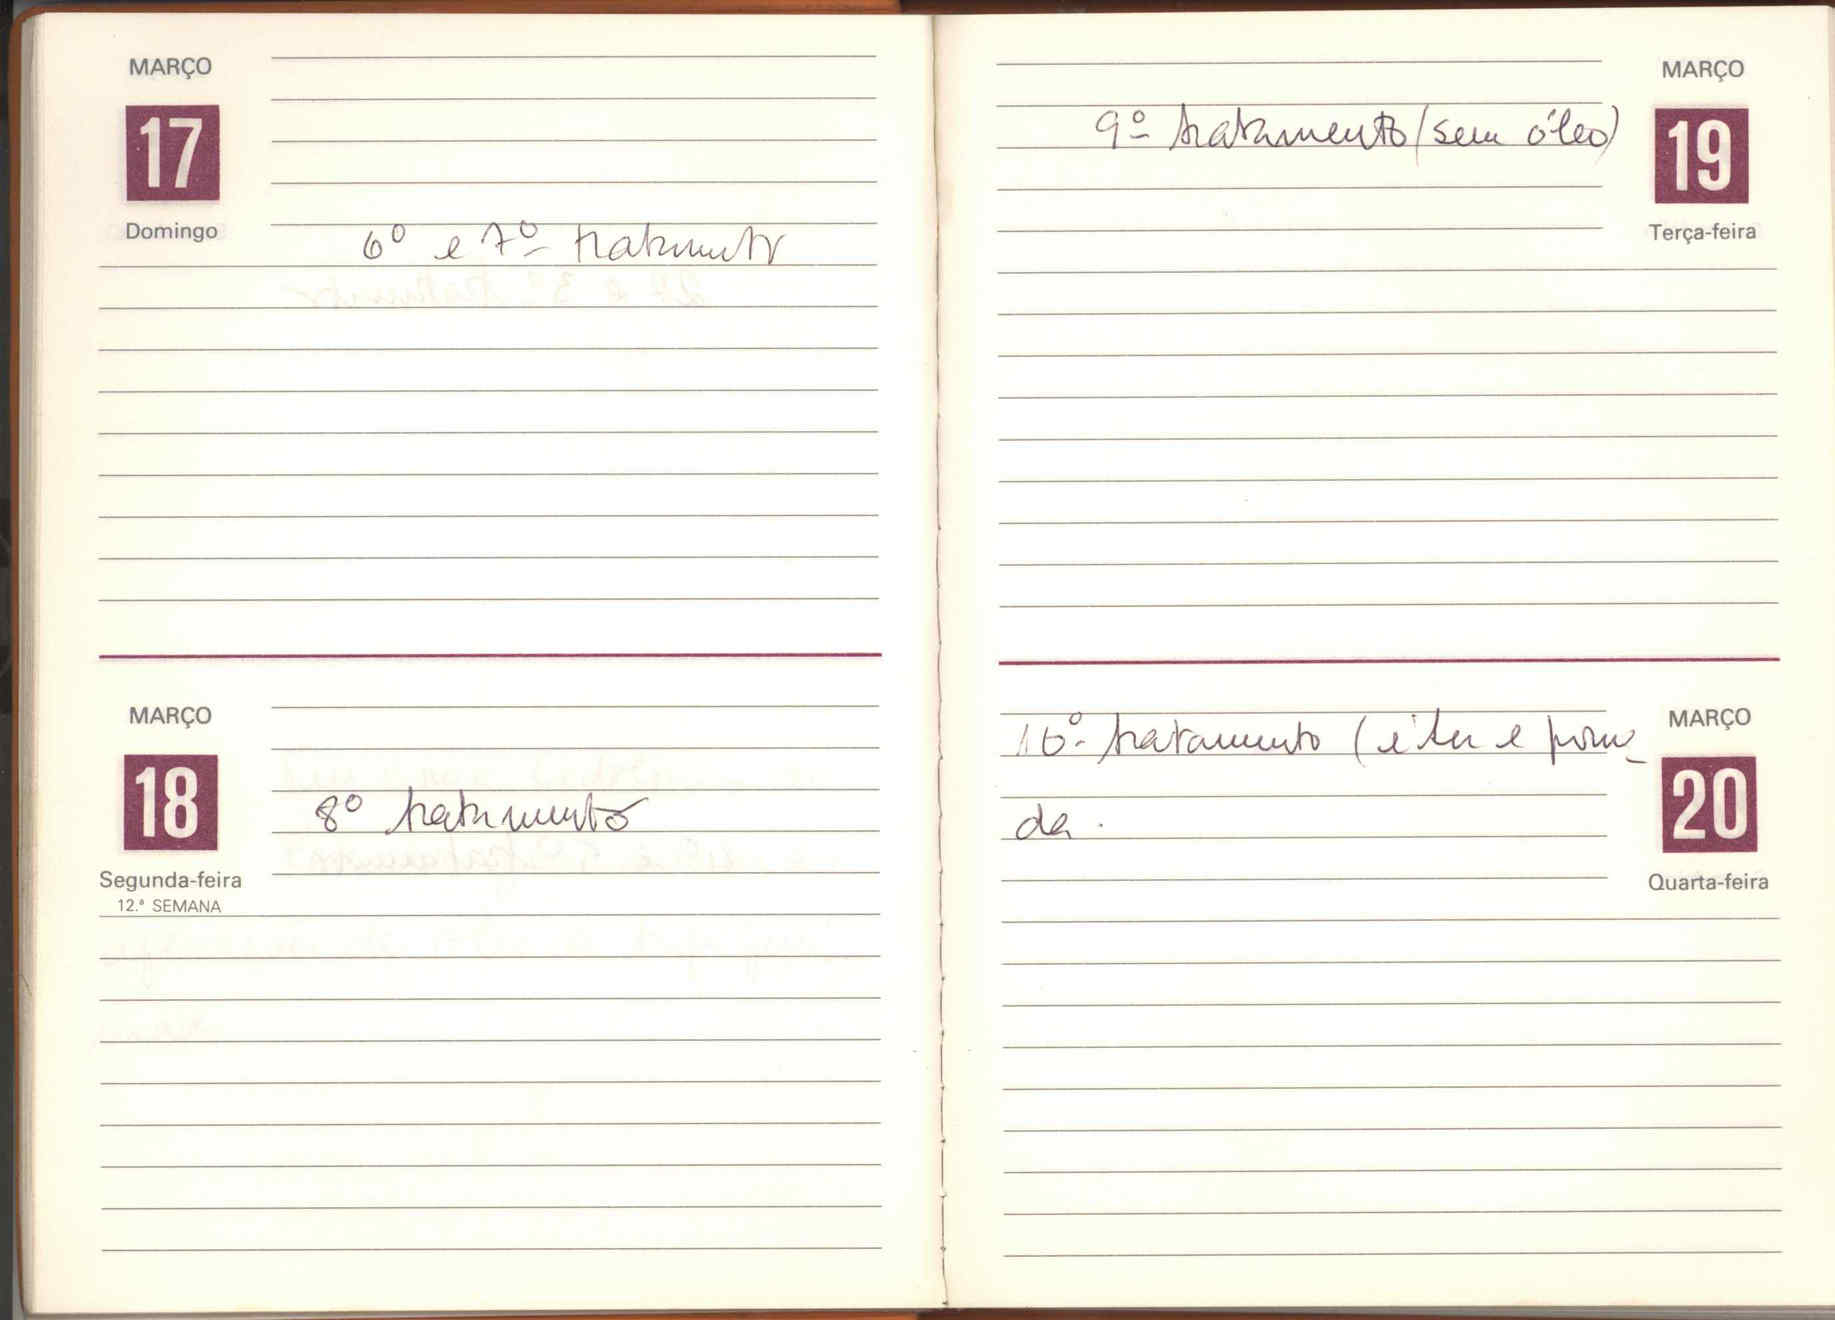 MARÇO
17
Domingo
6º e 7º tratamento
MARÇO
18
Segunda-feira
12.ª SEMANA
8º tratamento
MARÇO
19
Terça-feira
9º tratamento (sem óleo)
MARÇO
20
Quarta-feira
10º tratamento (éter e poma_
da.